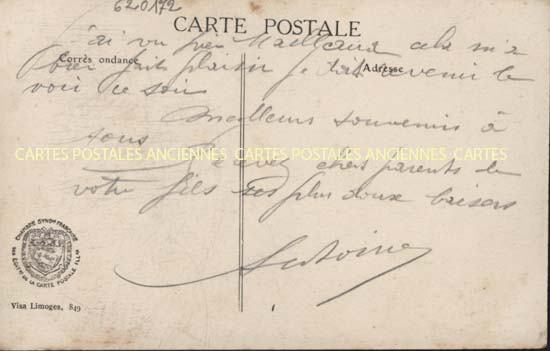 620172
CARTE POSTALE
j'ai vu hier Mailland cela m'a
Corrès ondance
Adresse
bien fait plaisir je dois revenir le
voir ce soir
Meilleurs souvenirs à
tous
CARTES POSTALES ANCIENNES CARTES POSTALES ANCIENNES CARTES
Recevez chers parents de
votre fils ses plus doux baisers
Antoine
CHAMBRE SYNDle FRANÇAISE
DES EDITrs DE LA CARTE POSTALE ILLée
Visa Limoges, 849